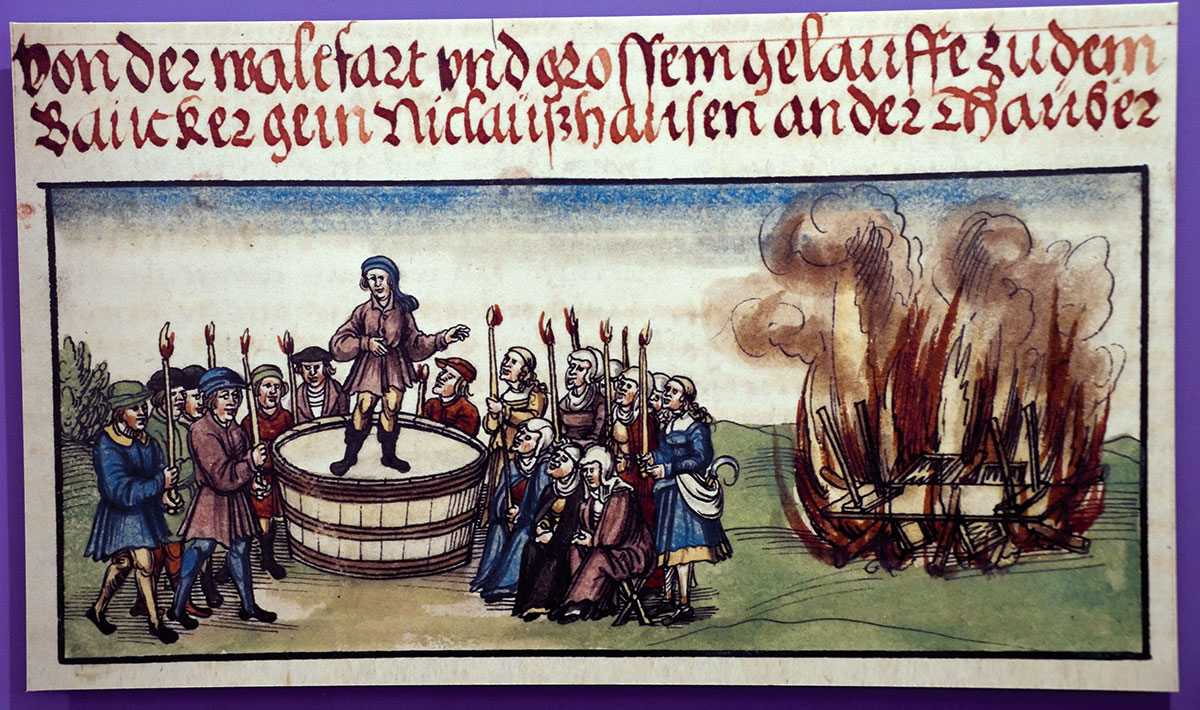 von der walefart vnd grossem gelauffe zu dem
Baucker gein Niclaußhausen an der Thauber